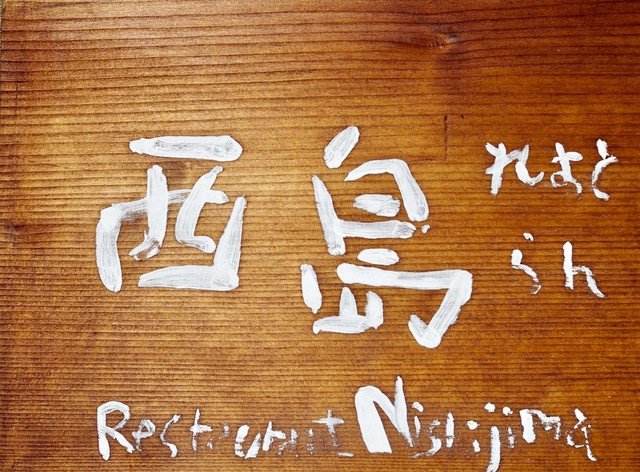 西島
れすと
らん
Restaurant Nishijima